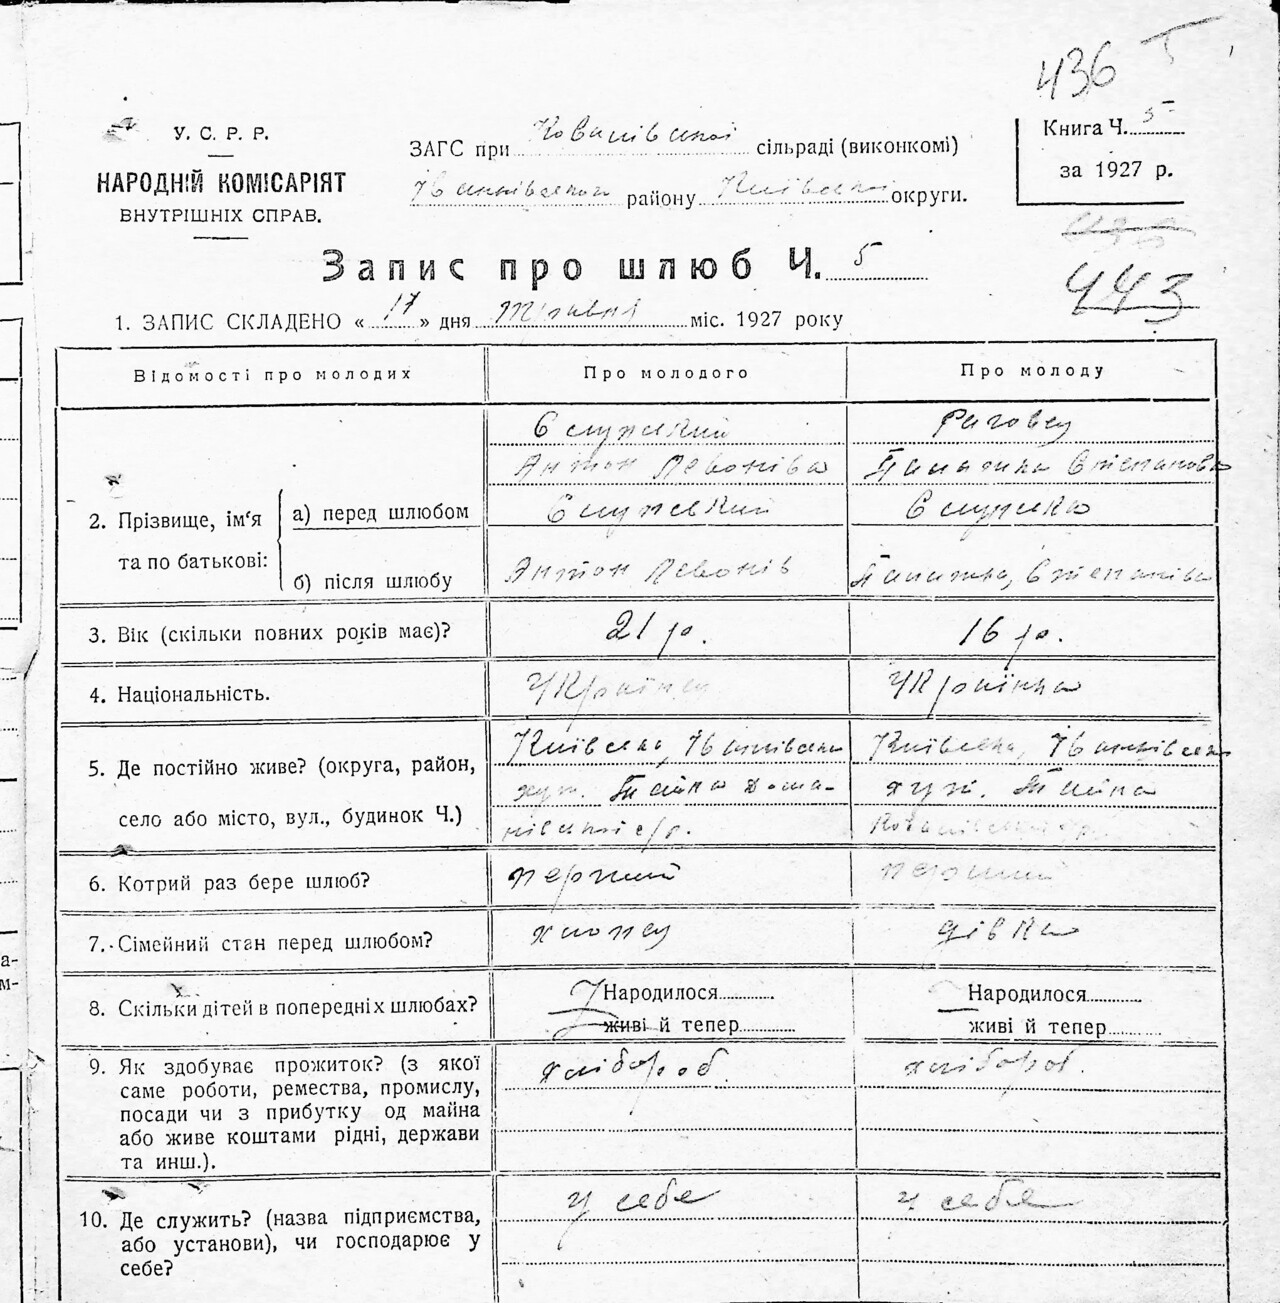 436
У. С. Р. Р.
НАРОДНІЙ КОМІСАРІЯТ
ВНУТРІШНІХ СПРАВ.
ЗАГС при сільраді (виконкомі)
району Київської округи.
Книга Ч. 5
за 1927 р.
Запис про шлюб Ч. 5
443
1. ЗАПИС СКЛАДЕНО « 17 » дня Травня міс. 1927 року
Відомості про молодих Про молодого Про молоду
2. Прізвище, ім‘я та по батькові:
а) перед шлюбом
Антон Левонів
б) після шлюбу
Антон Левонів
3. Вік (скільки повних років має)? 21 р. 16 р.
4. Національність. Українець Українка
5. Де постійно живе? (округа, район,
село або місто, вул., будинок Ч.)
Київська,
хут.
Київська,
хут.
6. Котрий раз бере шлюб? перший перший
7. Сімейний стан перед шлюбом? хлопець дівка
8. Скільки дітей в попередніх шлюбах?
Народилося
живі й тепер
Народилося
живі й тепер
9. Як здобуває прожиток? (з якої
саме роботи, ремества, промислу,
посади чи з прибутку од майна
або живе коштами рідні, держави
та инш.).
хлібороб
хлібороб.
10. Де служить? (назва підприємства,
або установи), чи господарює у
себе?
у себе
у себе